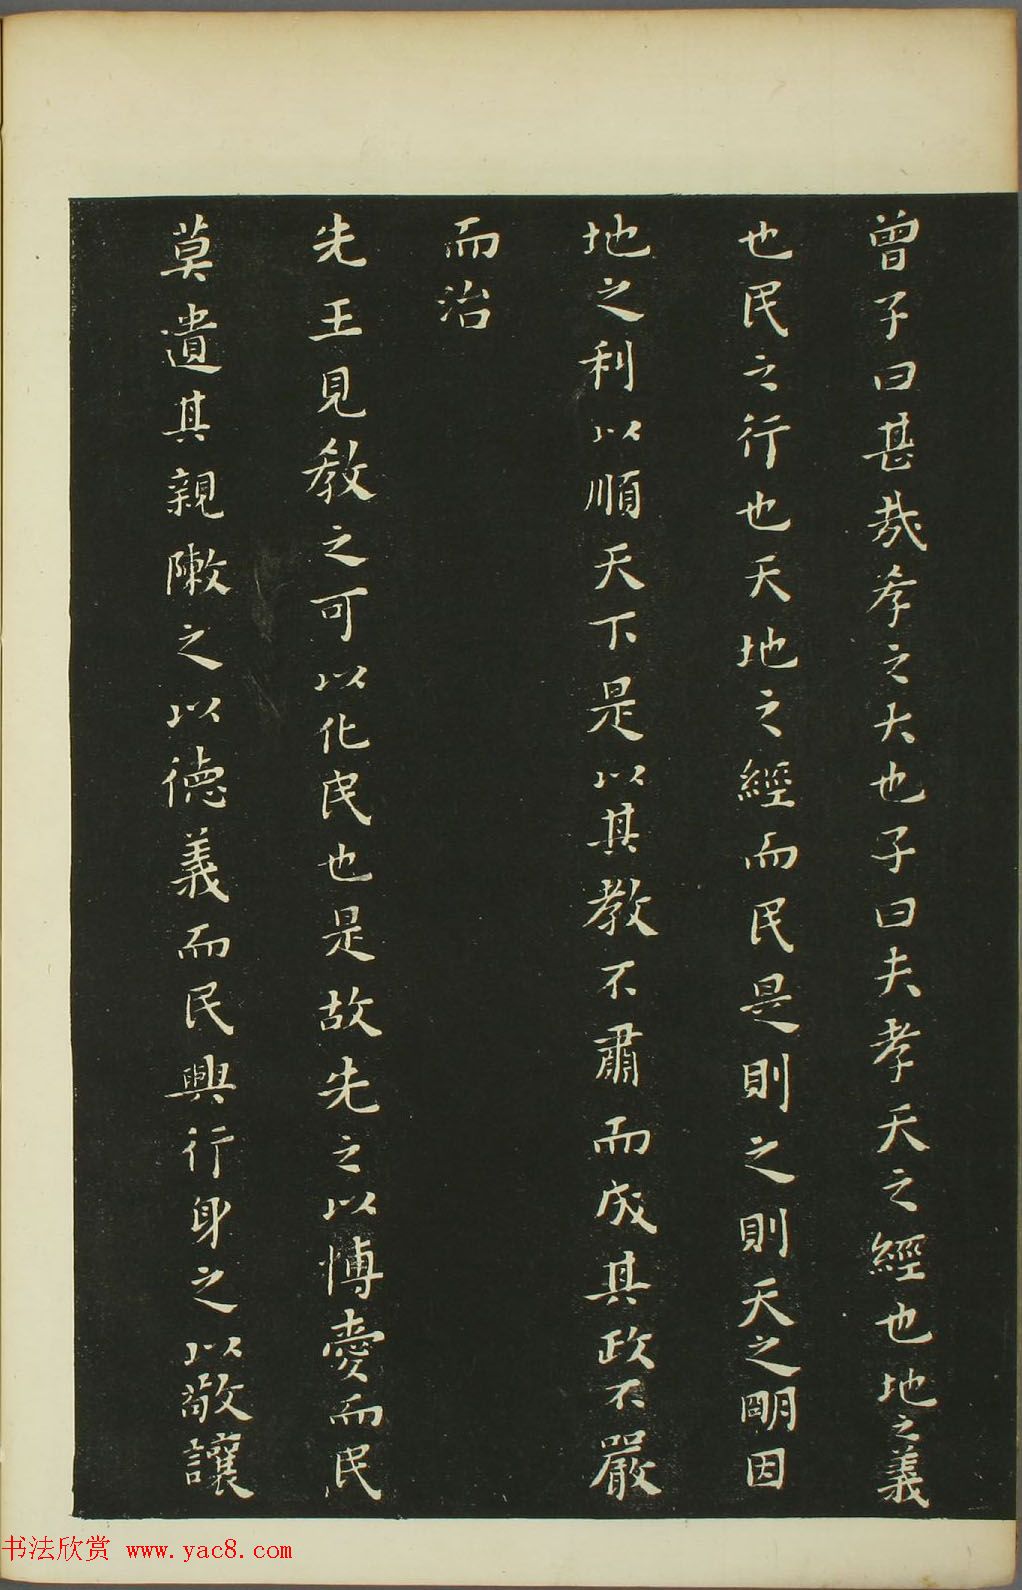 曾子曰甚哉孝之大也子曰夫孝天之經也地之義
也民之行也天地之經而民是則之則天之明因
地之利以順天下是以其教不肅而成其政不嚴
而治
先王見教之可以化民也是故先之以博愛而民
莫遺其親陳之以德義而民興行身之以敬讓
书法欣赏 www.yac8.com